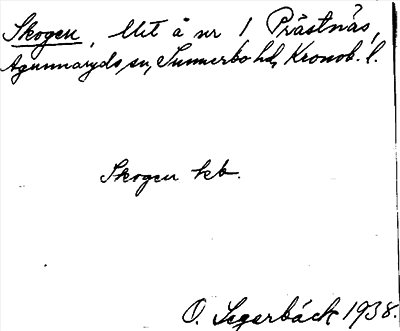 Skogen, Utt å nr 1 Prästnäs,
Agunnaryds sn, Sunnerbo hd, Kronob. l.
Skogen hb.
O. Segerbäck 1938.